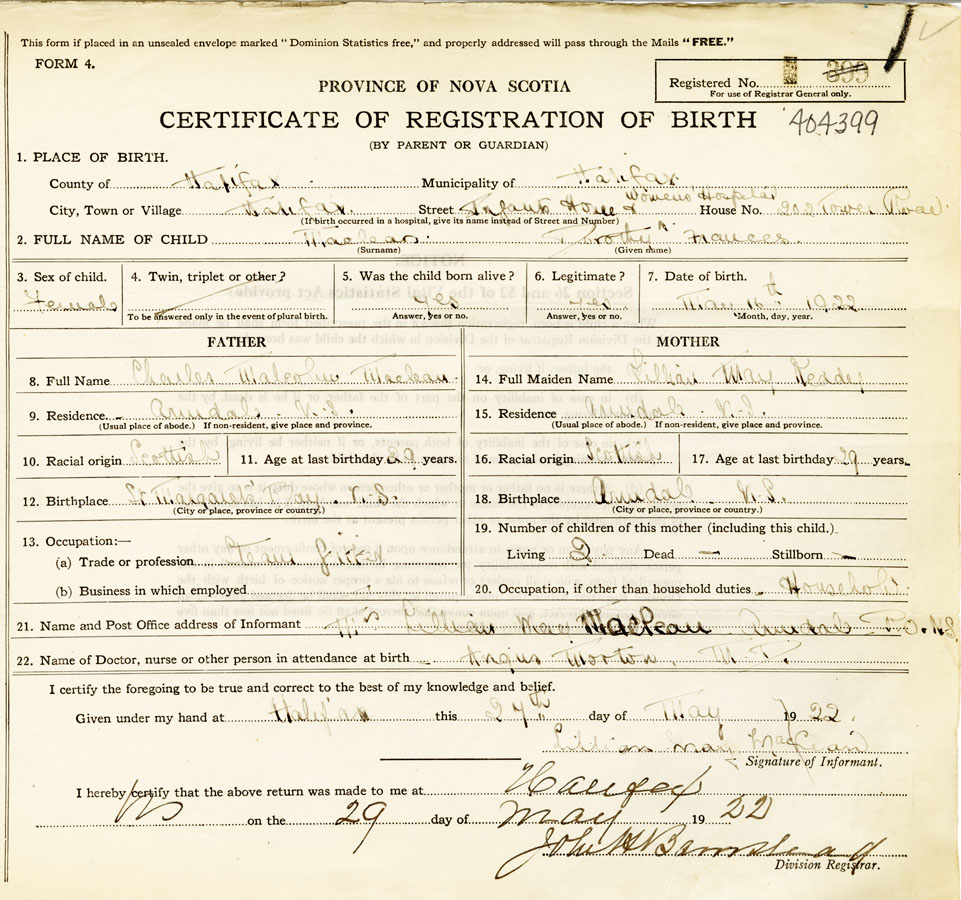 This form if placed in an unsealed envelope marked "Dominion Statistics free," and properly addressed will pass through the Mails "FREE."
FORM 4.
Registered No. 399
For use of Registrar General only.
PROVINCE OF NOVA SCOTIA
CERTIFICATE OF REGISTRATION OF BIRTH 404399
(BY PARENT OR GUARDIAN)
1. PLACE OF BIRTH.
County of Halifax Municipality of Halifax
City, Town or Village Halifax Street Infants Home & Womens Hospital House No. 202 Tower Road
(If birth occurred in a hospital, give its name instead of Street and Number)
2. FULL NAME OF CHILD Maclean Dorothy Frances
(Surname) (Given name)
3. Sex of child. 4. Twin, triplet or other? 5. Was the child born alive? 6. Legitimate? 7. Date of birth.
Female Yes Yes May 16th 1922
To be answered only in the event of plural birth. Answer, yes or no. Answer, yes or no. Month, day, year.
FATHER MOTHER
8. Full Name Charles Malcolm Maclean 14. Full Maiden Name Lillian May Keddy
9. Residence. Armdale N.S. 15. Residence Armdale N.S.
(Usual place of abode.) If non-resident, give place and province. (Usual place of abode.) If non-resident, give place and province.
10. Racial origin Scottish 11. Age at last birthday 29 years. 16. Racial origin Scottish 17. Age at last birthday 29 years
12. Birthplace St Margarets Bay. N.S. 18. Birthplace Armdale N.S.
(City or place, province or country.) (City or place, province or country.)
13. Occupation:— 19. Number of children of this mother (including this child.)
(a) Trade or profession Living 2 Dead — Stillborn —
(b) Business in which employed 20. Occupation, if other than household duties Household
21. Name and Post Office address of Informant Mrs Lillian May MacLean Armdale P.O. N.S.
22. Name of Doctor, nurse or other person in attendance at birth Angus Morton. M.D.
I certify the foregoing to be true and correct to the best of my knowledge and belief.
Given under my hand at Halifax this 27th day of May 1922.
Lillian May MacLean
Signature of Informant.
I hereby certify that the above return was made to me at Halifax
NS on the 29 day of May 1922
John H Barnstead
Division Registrar.